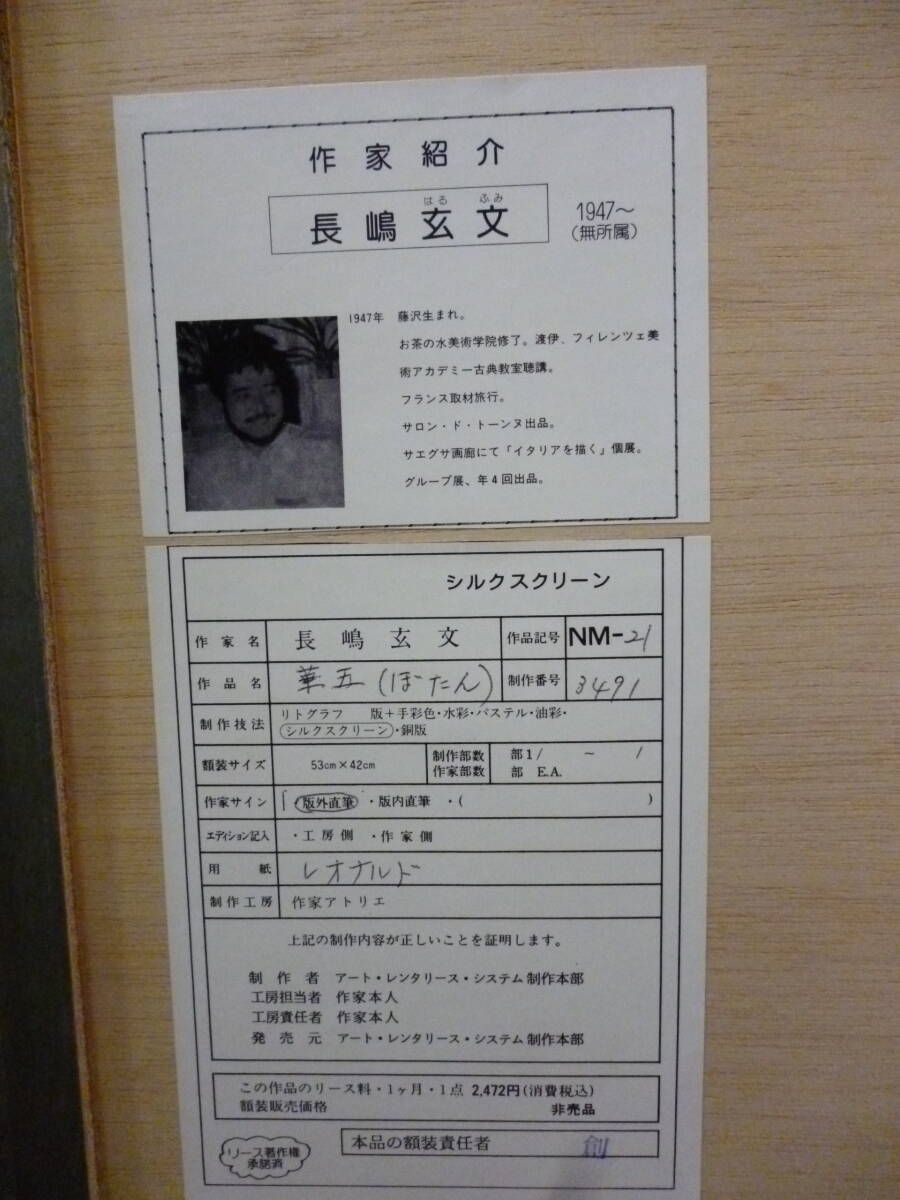 作家紹介
はる ふみ
長嶋玄文
1947～
(無所属)
1947年 藤沢生まれ。
お茶の水美術学院修了。渡伊、フィレンツェ美
術アカデミー古典教室聴講。
フランス取材旅行。
サロン・ド・トーンヌ出品。
サエグサ画廊にて「イタリアを描く」個展。
グループ展、年4回出品。
シルクスクリーン
作家名 長嶋玄文 作品記号 NM-21
作品名 華五(ぼたん) 制作番号 3491
制作技法 リトグラフ 版+手彩色・水彩・パステル・油彩・
シルクスクリーン・銅版
額装サイズ 53cm×42cm 制作部数 部1/ ～ /
作家部数 部 E.A.
作家サイン 版外直筆・版内直筆・( )
エディション記入 ・工房側 ・作家側
用紙 レオナルド
制作工房 作家アトリエ
上記の制作内容が正しいことを証明します。
制作者 アート・レンタリース・システム制作本部
工房担当者 作家本人
工房責任者 作家本人
発売元 アート・レンタリース・システム制作本部
この作品のリース料・1ヶ月・1点 2,472円(消費税込)
額装販売価格 非売品
リース著作権
承諾済
本品の額装責任者 創